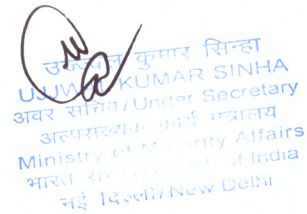 उज्ज्वल कुमार सिन्हा
UJJWAL KUMAR SINHA
अवर सचिव/Under Secretary
अल्पसंख्यक कार्य मंत्रालय
Ministry of Minority Affairs
भारत of India
नई दिल्ली/New Delhi